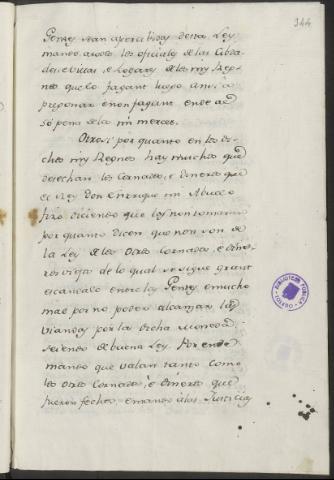 344
Gentes sean apercibidas desta Ley
mando a todos los oficiales de las Cibda-
des, e Villas, e Logares de los mis Reg-
nos que lo fagant luego ansi a
pregonar e non fagant ende al
so pena de la mi merced.
Otrosi por quanto en los di-
chos mis Regnos hay muchos que
desechan los Cornados, e Dineros que
el Rey Don Enrique mi Abuelo
fizo diciendo que los non tomaran
por quanto dicen que non son de
la Ley de los otros Cornados, e dine-
ros viejos de lo qual se sigue grant
escandalo entre las Gentes, e mucho
mas por no poder alcanzar las
viandas por la dicha moneda
seiendo de buena Ley. Por ende
mando que valan tanto como
los otros Cornados, e Dineros que
fueron fechos, e mando a las Justicias
BIBLIOTECA PUBLICA